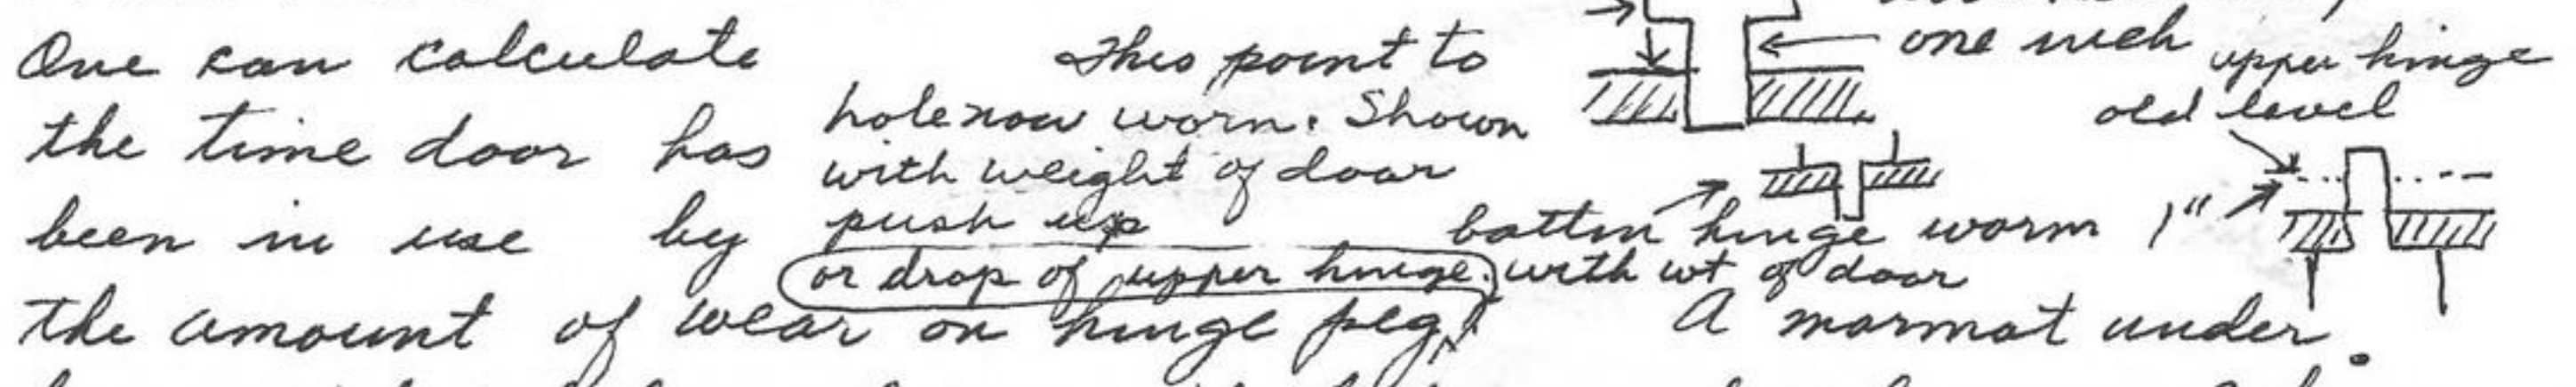 One can calculate
the time door has
been in use by
the amount of wear on hinge peg,
or drop of upper hinge.
This point to
hole now worn. Shown
with weight of door
push up
one inch
upper hinge
old level
1"
bottm hinge worn
with wt of door
A marmot under